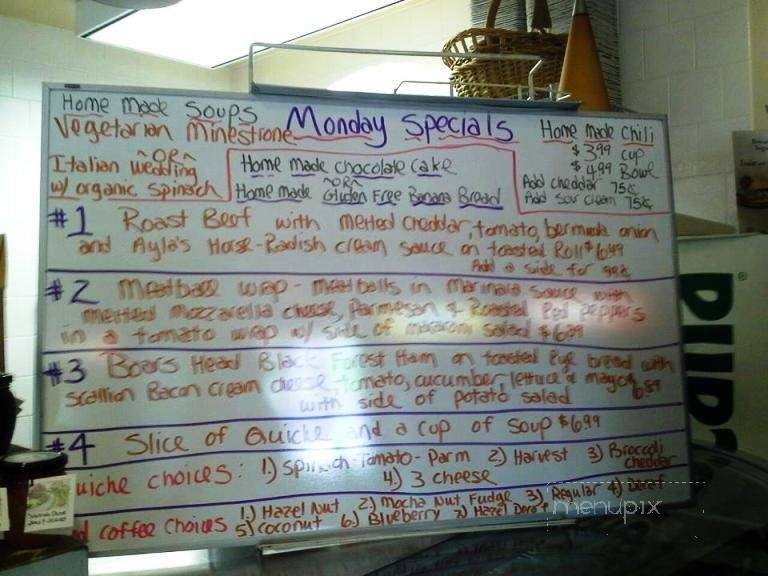 Home made Soups
Vegetarian Minestrone
~OR~
Italian wedding
w/ organic spinach
Monday Specials
Home made chocolate cake
~OR~
Home made Gluten Free Banana Bread
Home made chili
$3.99 cup
$4.99 Bowl
Add cheddar 75¢
Add sour cream 75¢
#1 Roast Beef with melted cheddar, tomato, bermuda onion
and Ayla's Horse-Radish cream sauce on toasted Roll $6.49
Add a side for 99¢
#2 Meatball wrap - meatballs in marinara sauce with
melted mozzarella cheese, Parmesan & Roasted Red Peppers
in a tomato wrap w/ side of macaroni salad
#3 Boars Head Black Forest Ham on toasted Rye bread with
scallion Bacon cream cheese, tomato, cucumber, lettuce & mayo
with side of potato salad
#4 Slice of Quiche and a cup of soup $6.99
uiche choices: 1.) Spinach-Tomato-Parm 2) Harvest 3) Broccoli cheddar
4.) 3 cheese
d coffee choices 1.) Hazel Nut 2.) Mocha Nut Fudge 3) Regular 4) Decaf
5) coconut 6) Blueberry 7) Hazel
menupix